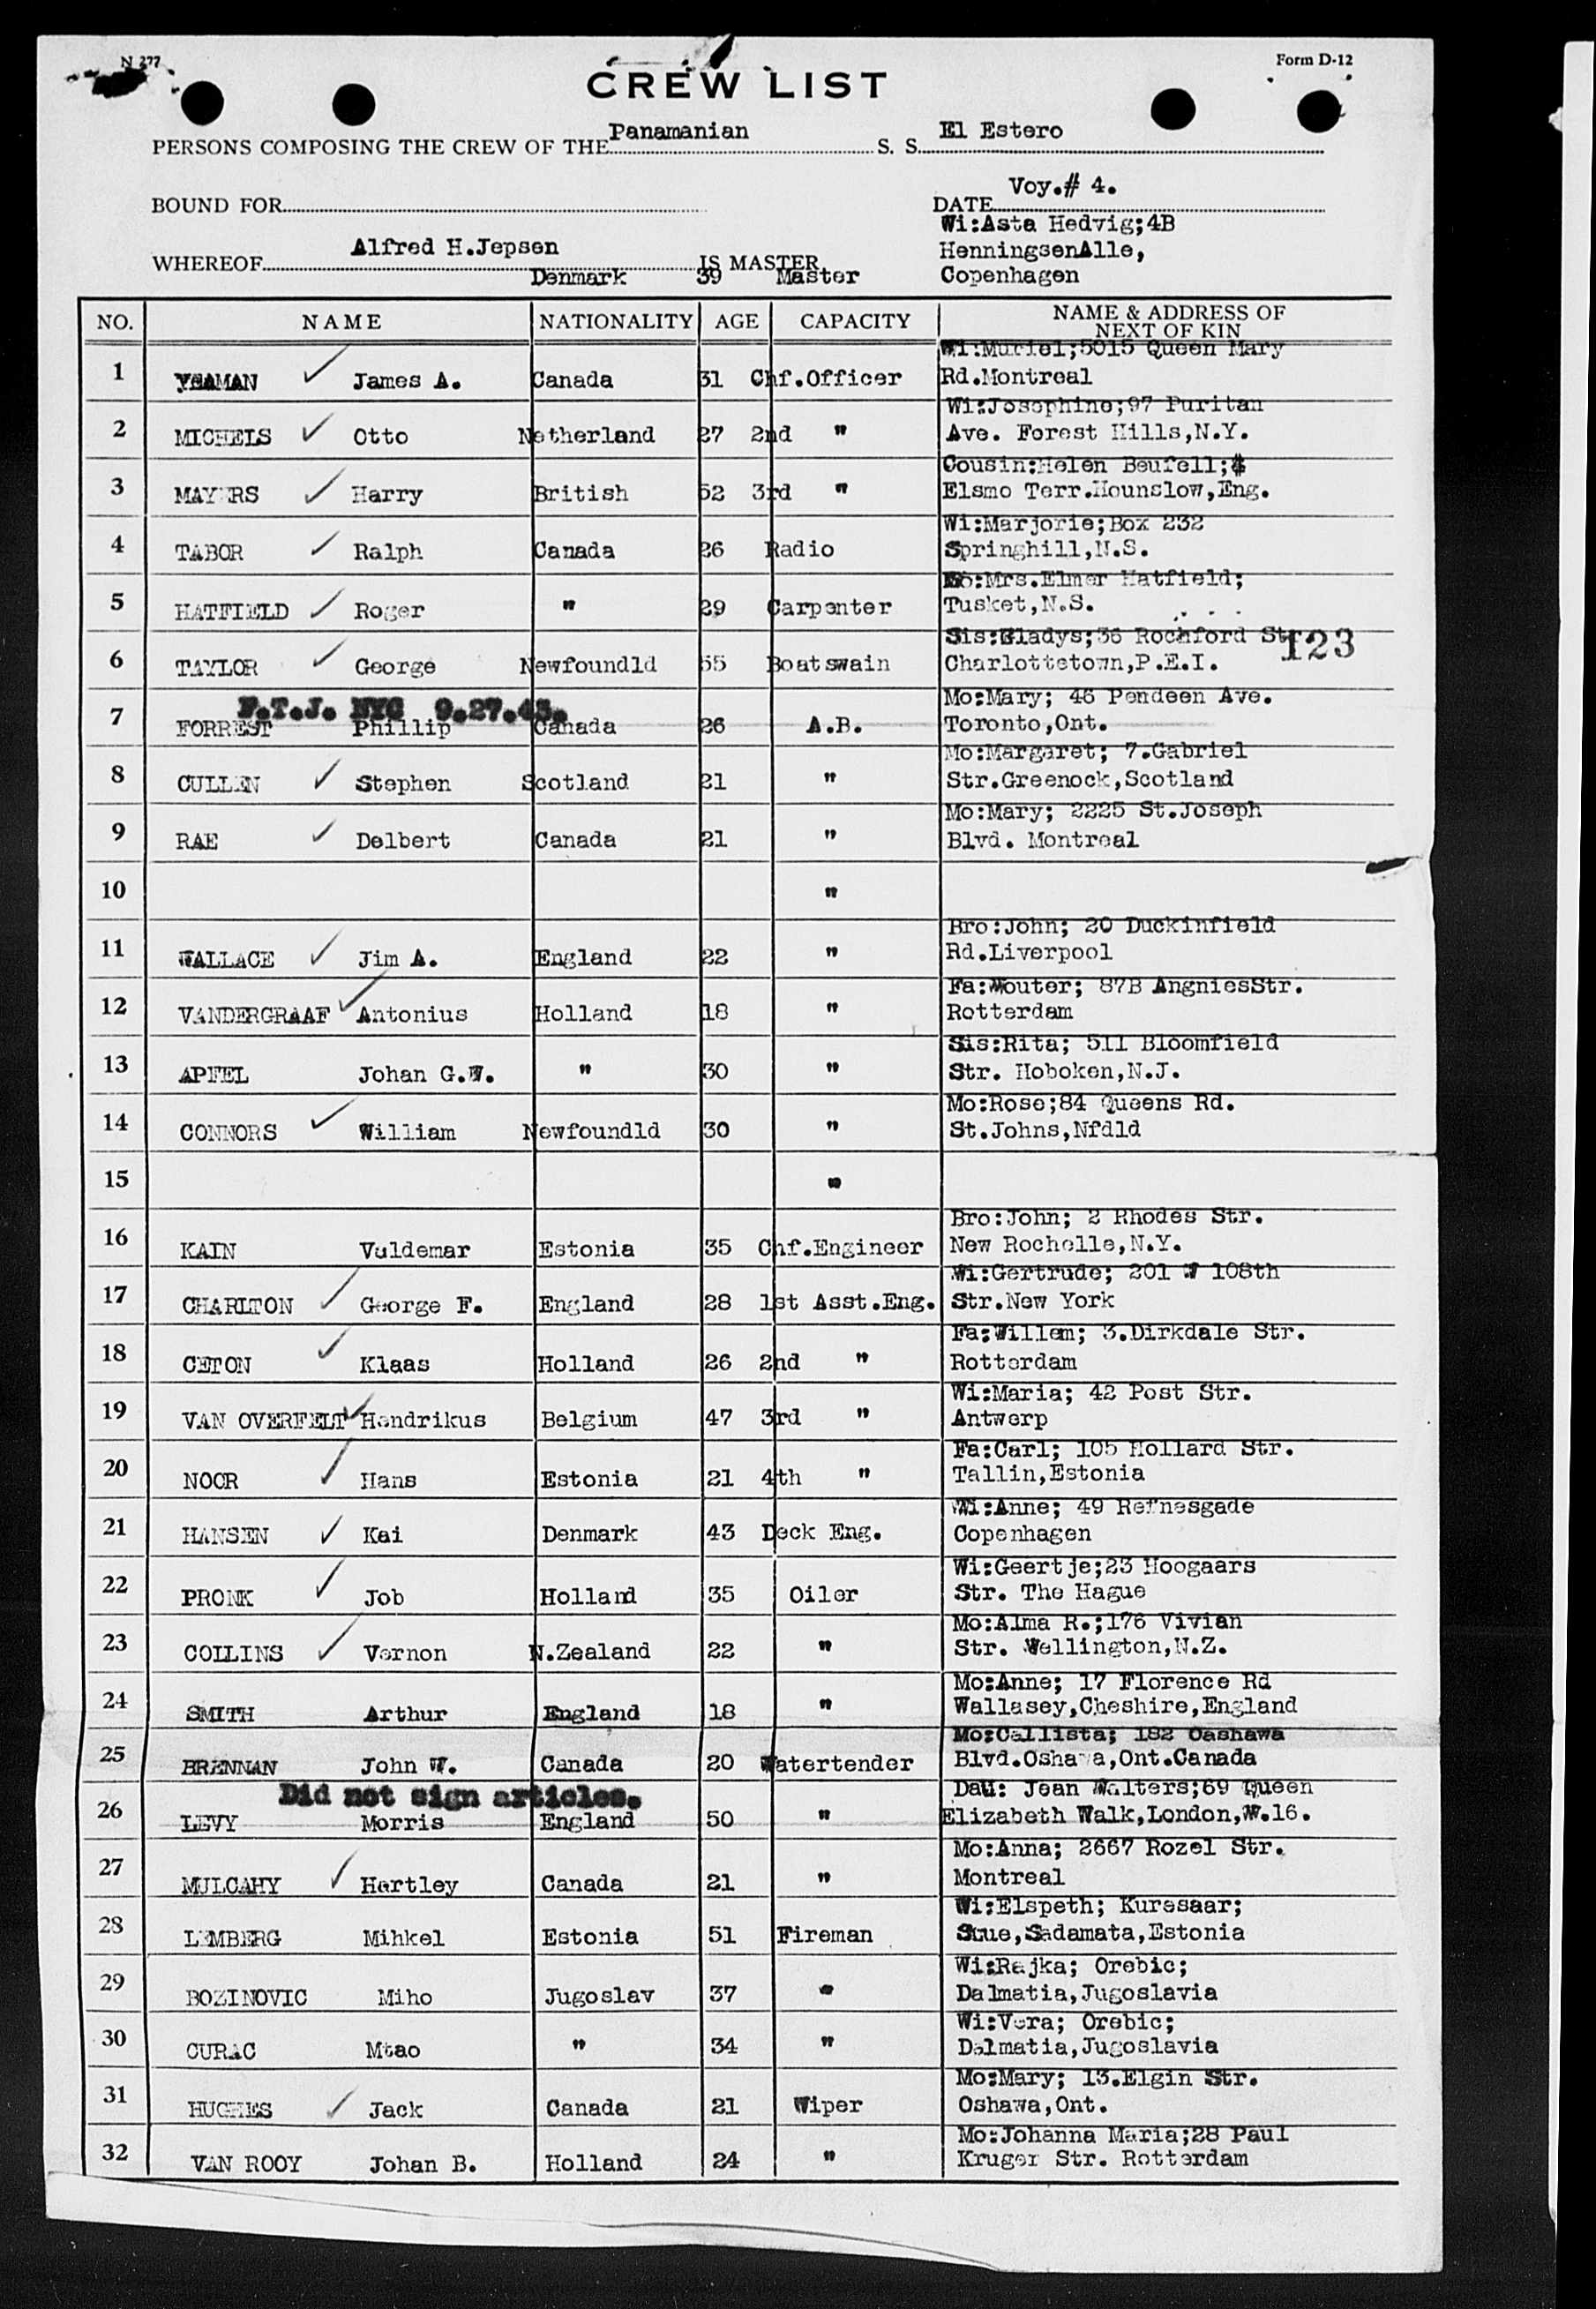 N 277
Form D-12
CREW LIST
PERSONS COMPOSING THE CREW OF THE Panamanian S. S. El Estero
BOUND FOR DATE Voy.# 4.
WHEREOF Alfred H.Jepsen IS MASTER
Denmark 39 Master
Wi:Asta Hedvig;4B
HenningsenAlle,
Copenhagen
NO. NAME NATIONALITY AGE CAPACITY NAME & ADDRESS OF
NEXT OF KIN
Wi:Muriel;5015 Queen Mary
1 YEAMAN James A. Canada 31 Chf.Officer Rd.Montreal
Wi:Josephine;97 Puritan
2 MICHELS Otto Netherland 27 2nd " Ave. Forest Hills,N.Y.
Cousin:Helen Beufell;
3 MAYERS Harry British 52 3rd " Elsmo Terr.Hounslow,Eng.
Wi:Marjorie;Box 232
4 TABOR Ralph Canada 26 Radio Springhill,N.S.
Mrs.Elmer Hatfield;
5 HATFIELD Roger " 29 Carpenter Tusket,N.S.
Sis:Gladys;36 Rochford St.
123
6 TAYLOR George Newfoundld 55 Boatswain Charlottetown,P.E.I.
F.T.J. NYC 9.27.43. Mo:Mary; 46 Pendeen Ave.
7 FORREST Phillip Canada 26 A.B. Toronto,Ont.
Mo:Margaret; 7.Gabriel
8 CULLEN Stephen Scotland 21 " Str.Greenock,Scotland
Mo:Mary; 2225 St.Joseph
9 RAE Delbert Canada 21 " Blvd. Montreal
10 "
Bro:John; 20 Duckinfield
11 WALLACE Jim A. England 22 " Rd.Liverpool
Fa:Wouter; 87B AngniesStr.
12 VANDERGRAAF Antonius Holland 18 " Rotterdam
Sis:Rita; 511 Bloomfield
13 APFEL Johan G.W. " 30 " Str. Hoboken,N.J.
Mo:Rose;84 Queens Rd.
14 CONNORS William Newfoundld 30 " St.Johns,Nfdld
15 "
Bro:John; 2 Rhodes Str.
16 KAIN Valdemar Estonia 35 Chf.Engineer New Rochelle,N.Y.
Wi:Gertrude; 201 W 108th
17 CHARLTON George F. England 28 1st Asst.Eng. Str.New York
Fa:Willem; 3.Dirkdale Str.
18 CETON Klaas Holland 26 2nd " Rotterdam
Wi:Maria; 42 Post Str.
19 VAN OVERFELT Hendrikus Belgium 47 3rd " Antwerp
Fa:Carl; 105 Hollard Str.
20 NOOR Hans Estonia 21 4th " Tallin,Estonia
Wi:Anne; 49 Refnesgade
21 HANSEN Kai Denmark 43 Deck Eng. Copenhagen
Wi:Geertje;23 Hoogaars
22 PRONK Job Holland 35 Oiler Str. The Hague
Mo:Alma R.;176 Vivian
23 COLLINS Vernon N.Zealand 22 " Str. Wellington,N.Z.
Mo:Anne; 17 Florence Rd
24 SMITH Arthur England 18 " Wallasey,Cheshire,England
Mo:Callista; 182 Oashawa
25 BRENNAN John W. Canada 20 Watertender Blvd.Oshawa,Ont.Canada
Did not sign articles. Dau: Jean Walters;69 Queen
26 LEVY Morris England 50 " Elizabeth Walk,London,W.16.
Mo:Anna; 2667 Rozel Str.
27 MULCAHY Hartley Canada 21 " Montreal
Wi:Elspeth; Kuresaar;
28 LEMBERG Mihkel Estonia 51 Fireman Sadamata,Estonia
Wi:Rajka; Orebic;
29 BOZINOVIC Miho Jugoslav 37 " Dalmatia,Jugoslavia
Wi:Vera; Orebic;
30 CURAC Mtao " 34 " Dalmatia,Jugoslavia
Mo:Mary; 13.Elgin Str.
31 HUGHES Jack Canada 21 Wiper Oshawa,Ont.
Mo:Johanna Maria;28 Paul
32 VAN ROOY Johan B. Holland 24 " Kruger Str. Rotterdam